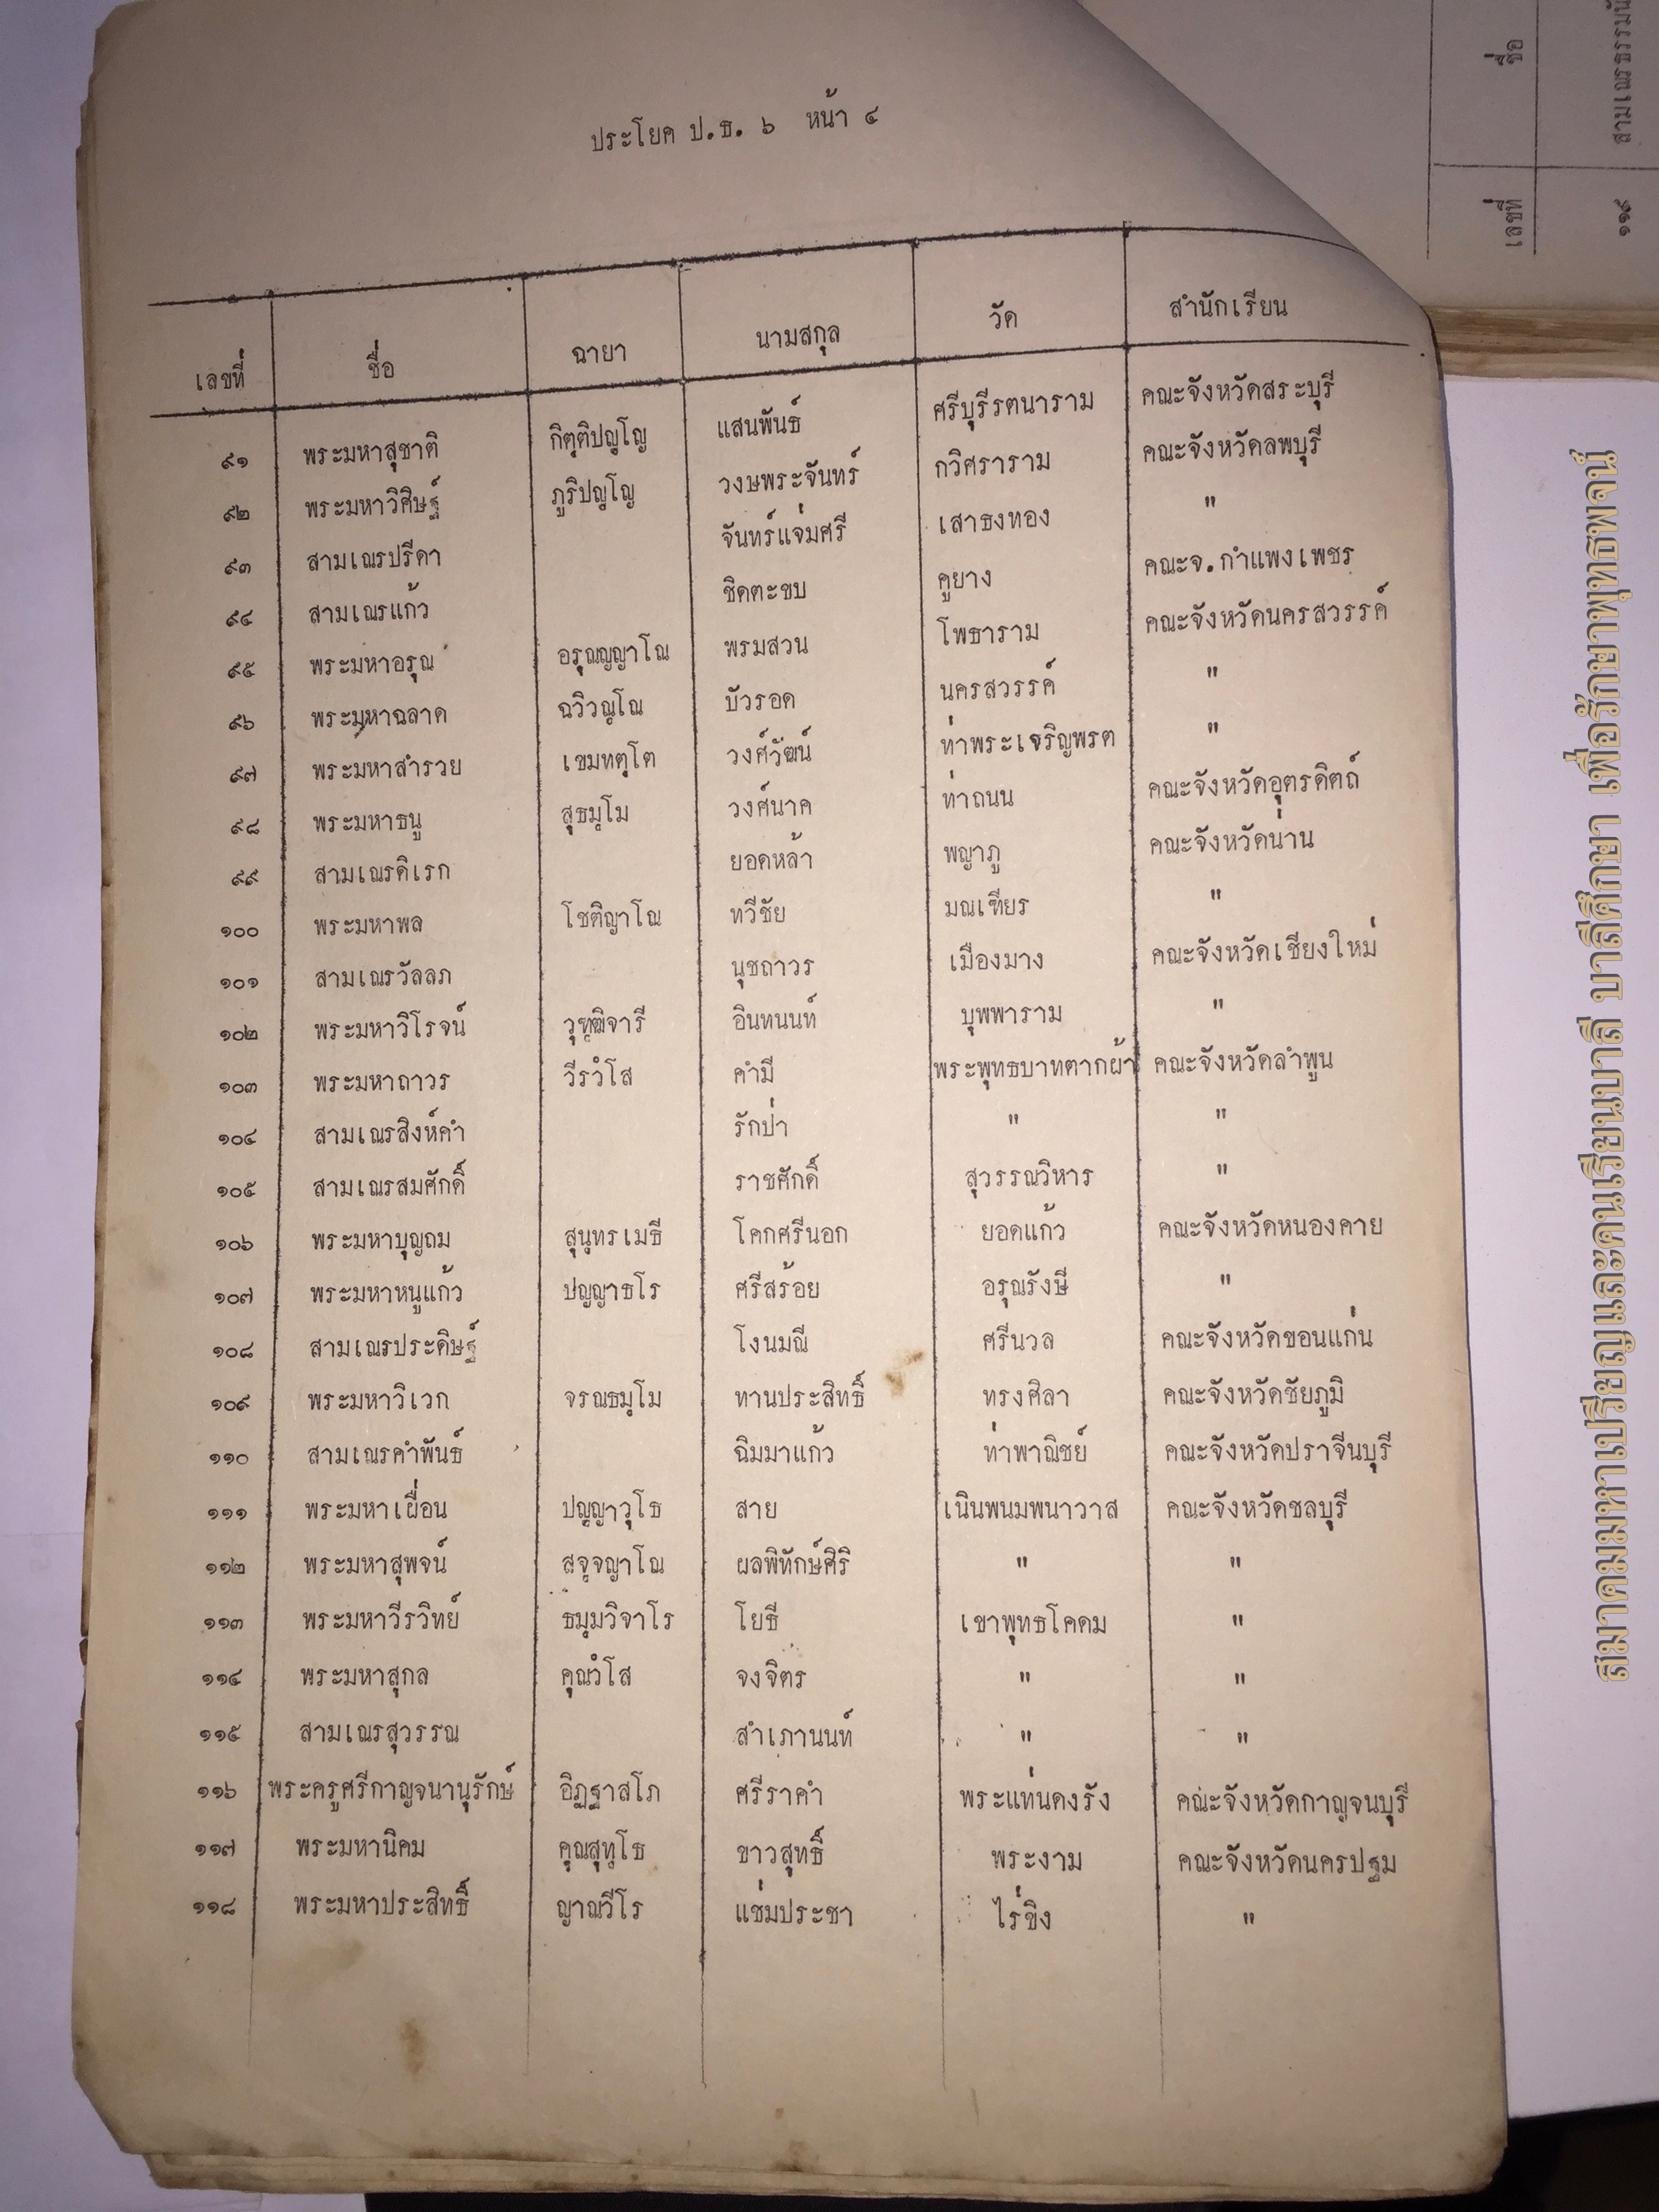 ประโยค ป.ธ. ๖ หน้า ๔
เลขที่ ชื่อ ฉายา นามสกุล วัด สำนักเรียน
๙๑ พระมหาสุชาติ กิตฺติปญฺโญ แสนพันธ์ ศรีบุรีรตนาราม คณะจังหวัดสระบุรี
๙๒ พระมหาวิศิษฐ์ ภูริปญฺโญ วงษพระจันทร์ กวิศราราม คณะจังหวัดลพบุรี
๙๓ สามเณรปรีดา จันทร์แจ่มศรี เสาธงทอง "
๙๔ สามเณรแก้ว ชิดตะขบ คูยาง คณะจ.กำแพงเพชร
๙๕ พระมหาอรุณ อรุณญฺญาโณ พรมสวน โพธาราม คณะจังหวัดนครสวรรค์
๙๖ พระมหาฉลาด ฉวิวณฺโณ บัวรอด นครสวรรค์ "
๙๗ พระมหาสำรวย เขมทตฺโต วงศ์วัฒน์ ท่าพระเจริญพรต "
๙๘ พระมหาธนู สุธมฺโม วงศ์นาค ท่าถนน คณะจังหวัดอุตรดิตถ์
๙๙ สามเณรดิเรก ยอดหล้า พญาภู คณะจังหวัดน่าน
๑๐๐ พระมหาพล โชติญาโณ ทวีชัย มณเฑียร "
๑๐๑ สามเณรวัลลภ นุชถาวร เมืองมาง คณะจังหวัดเชียงใหม่
๑๐๒ พระมหาวิโรจน์ วุฑฺฒิจารี อินทนนท์ บุพพาราม "
๑๐๓ พระมหาถาวร วีรวํโส คำมี พระพุทธบาทตากผ้า คณะจังหวัดลำพูน
๑๐๔ สามเณรสิงห์คำ รักป่า " "
๑๐๕ สามเณรสมศักดิ์ ราชศักดิ์ สุวรรณวิหาร "
๑๐๖ พระมหาบุญถม สุนฺทรเมธี โคกศรีนอก ยอดแก้ว คณะจังหวัดหนองคาย
๑๐๗ พระมหาหนูแก้ว ปญฺญาธโร ศรีสร้อย อรุณรังษี "
๑๐๘ สามเณรประดิษฐ์ โงนมณี ศรีนวล คณะจังหวัดขอนแก่น
๑๐๙ พระมหาวิเวก จรณธมฺโม ทานประสิทธิ์ ทรงศิลา คณะจังหวัดชัยภูมิ
๑๑๐ สามเณรคำพันธ์ ฉิมมาแก้ว ท่าพาณิชย์ คณะจังหวัดปราจีนบุรี
๑๑๑ พระมหาเผื่อน ปญฺญาวุโธ สาย เนินพนมพนาวาส คณะจังหวัดชลบุรี
๑๑๒ พระมหาสุพจน์ สจฺจญาโณ ผลพิทักษ์ศิริ " "
๑๑๓ พระมหาวีรวิทย์ ธมฺมวิจาโร โยธี เขาพุทธโคดม "
๑๑๔ พระมหาสุกล คุณวํโส จงจิตร " "
๑๑๕ สามเณรสุวรรณ สำเภานนท์ " "
๑๑๖ พระครูศรีกาญจนานุรักษ์ อิฏฐาสโภ ศรีราคำ พระแท่นดงรัง คณะจังหวัดกาญจนบุรี
๑๑๗ พระมหานิคม คุณสุทฺโธ ขาวสุทธิ์ พระงาม คณะจังหวัดนครปฐม
๑๑๘ พระมหาประสิทธิ์ ญาณวีโร แช่มประชา ไร่ขิง "
เลขที่ ชื่อ
๑๑๙ สามเณรธรรมนั
สมาคมมหาเปรียญและคนเรียนบาลี บาลีศึกษา เพื่อรักษาพุทธพจน์